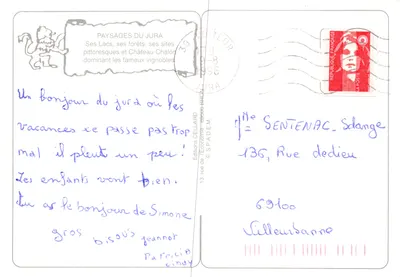 PAYSAGES DU JURA
Ses Lacs, ses forêts, ses sites
pittoresques et Château Chalon
dominant les fameux vignobles
Un bonjour du jura où les
vacances ce passe pas trop
mal il pleut un peu.
Les enfants vont bien.
Tu as le bonjour de Simone
gros bisous Jeannot
Patricia
Cindy
Mlle SENTENAC Solange
136, Rue dedieu
69100
Villeurbanne